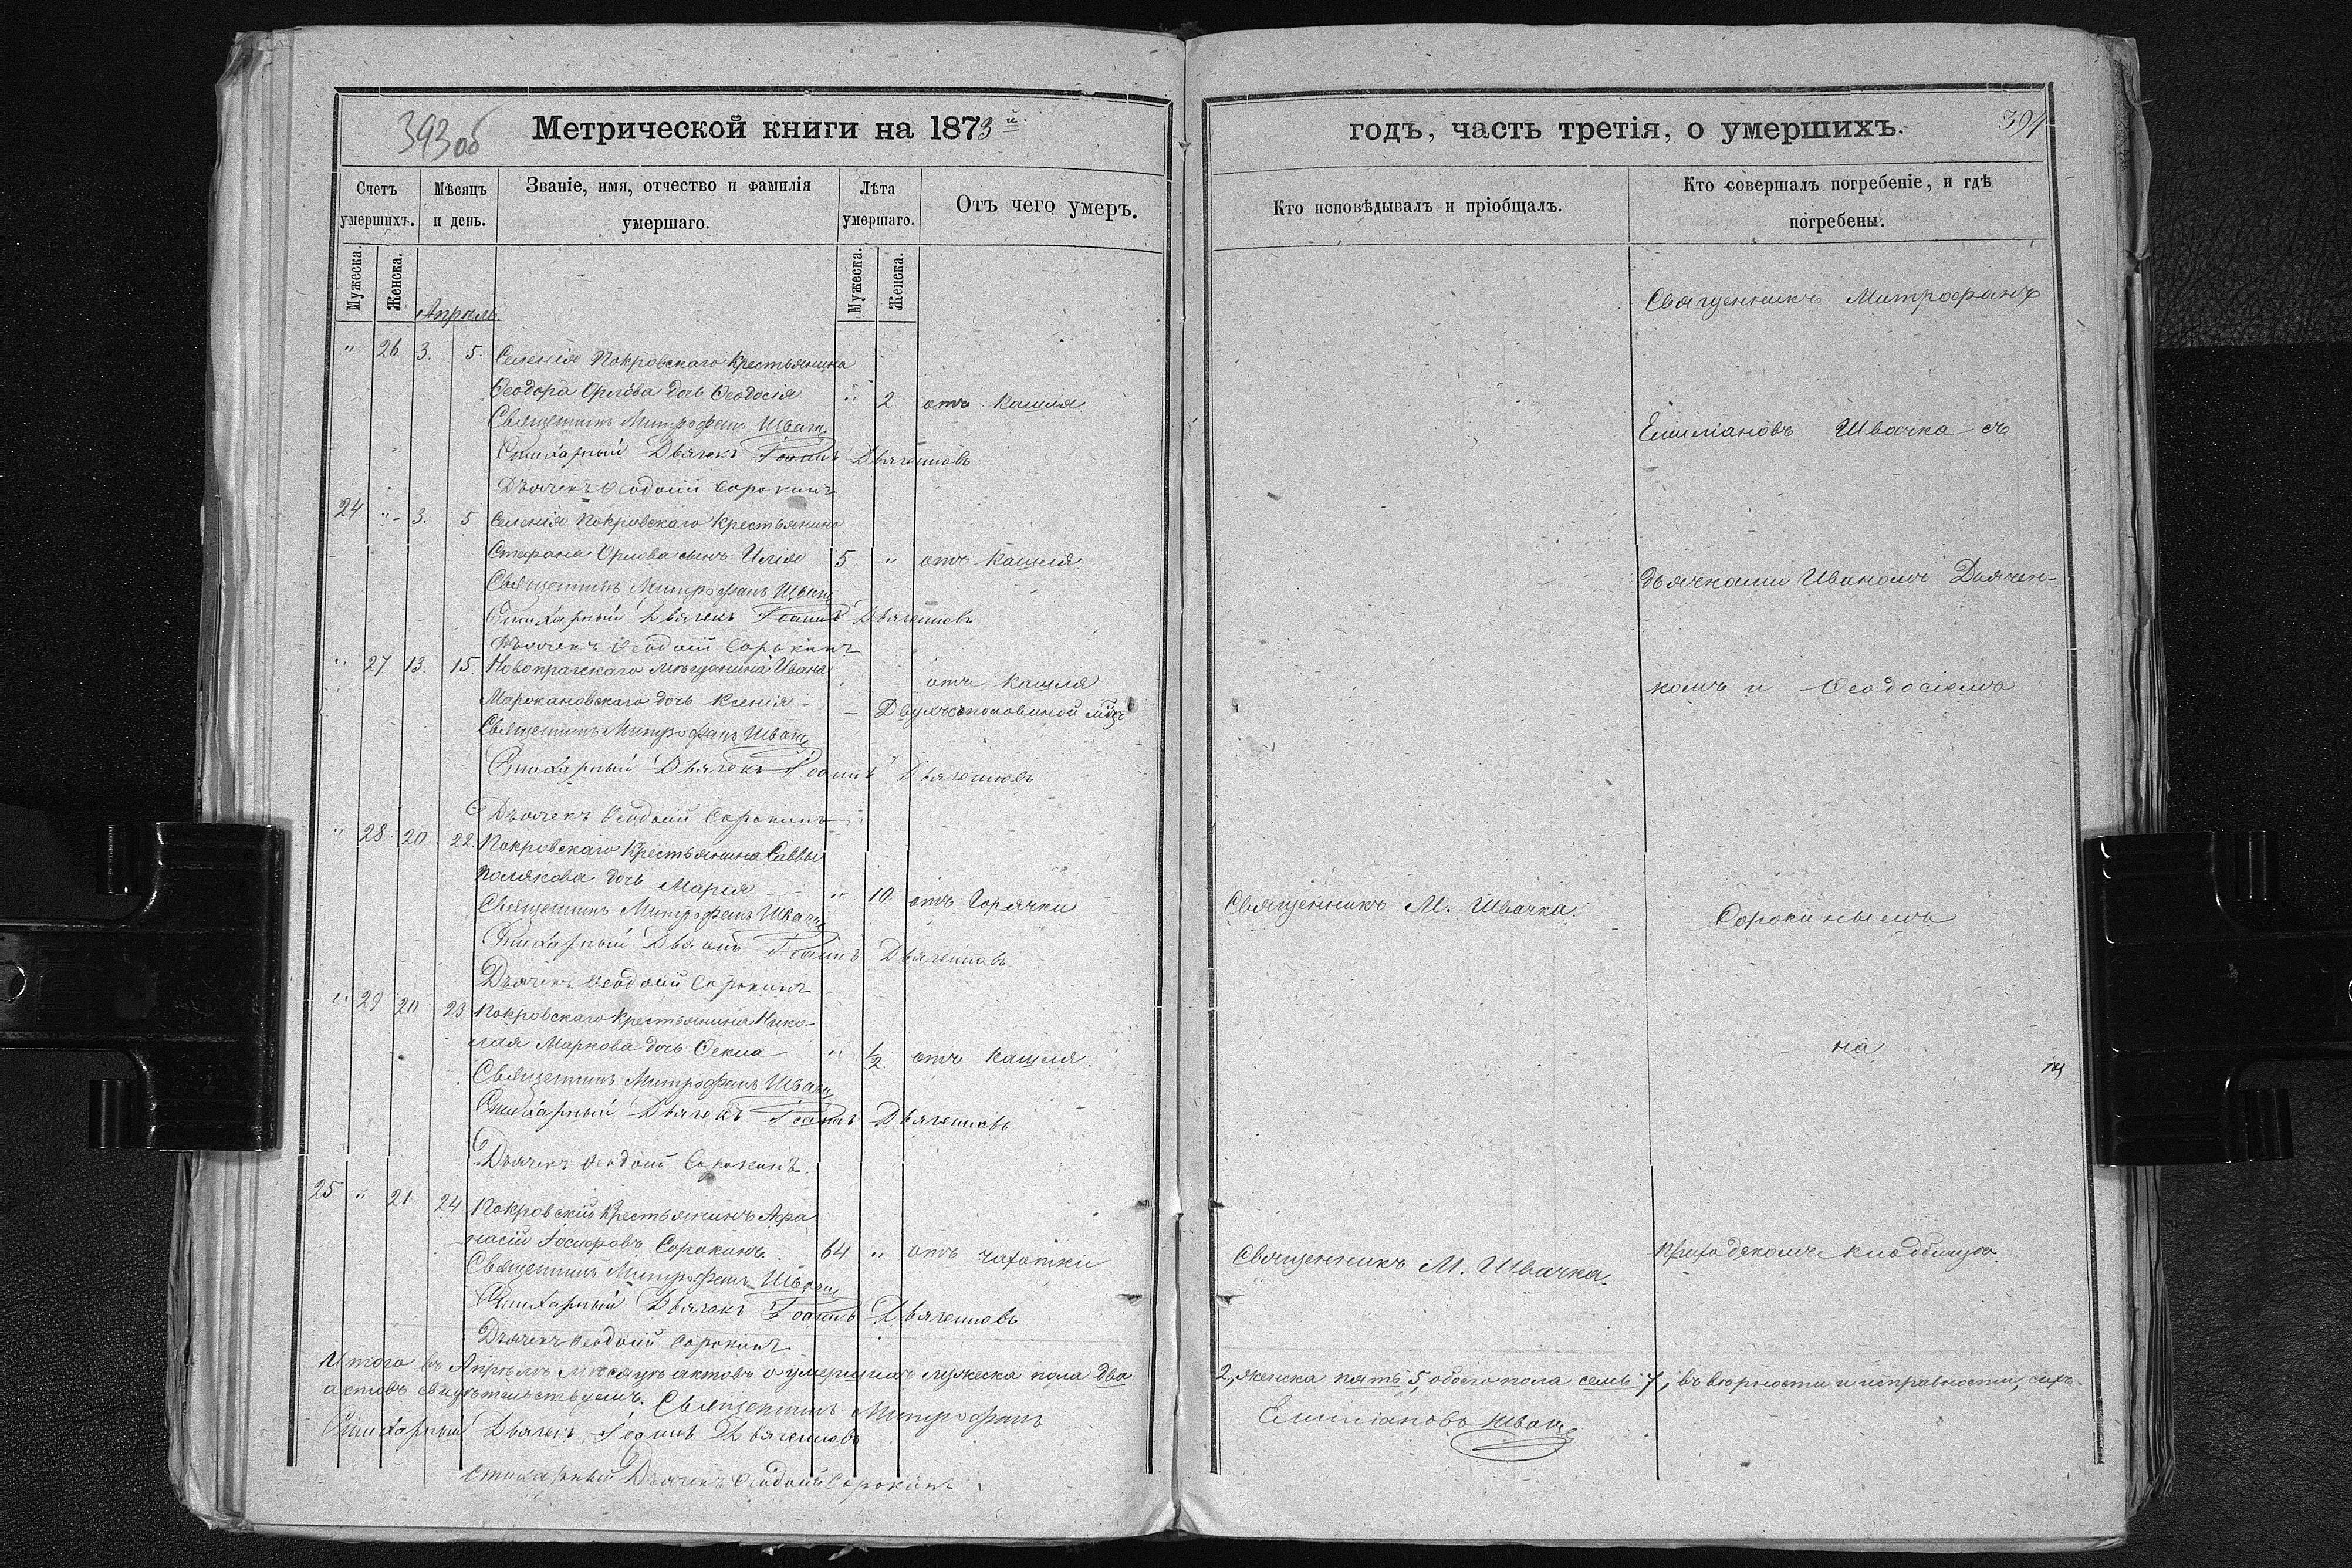 393об
Метрической книги на 1873й
Счетъ умершихъ.
Мѣсяцъ и день.
Званіе, имя, отчество и фамилія умершаго.
Лѣта умершаго.
Отъ чего умеръ.
Мужеска.
Женска.
Апрѣль
Мужеска.
Женска.
" 26. 3. 5. Селенія Покровскаго Крестьянина
Ѳеодора Орлова дочь Ѳеодосія " 2 отъ кашля.
Священникъ Митрофанъ Швачк
Стихарный Дьячекъ Іоаннъ Дьяченковъ
Дьячекъ Ѳеодосій Сорокинъ
24 " 3. 5 Селенія Покровскаго Крестьянина
Стефана Орлова сынъ Илія 5 " отъ кашля.
Священникъ Митрофанъ Швачк
Стихарный Дьячекъ Іоаннъ Дьяченковъ
Дьячекъ Ѳеодосій Сорокинъ
" 27. 13. 15. Новопражскаго мѣщанина Ивана
отъ кашля
Марокановскаго дочь Ксенія — — Двухъ споловиной
Священникъ Митрофанъ Швачк
Стихарный Дьячекъ Іоаннъ Дьяченковъ
Дьячекъ Ѳеодосій Сорокинъ
" 28. 20. 22. Покровскаго Крестьянина Саввы
Полякова дочь Марія — " 10. отъ горячки
Священникъ Митрофанъ Швачк
Стихарный Дьячекъ Іоаннъ Дьяченковъ
Дьячекъ Ѳеодосій Сорокинъ
" 29 20 23 Покровскаго Крестьянина Нико-
лая Маркова дочь Ѳекла " 1/2. отъ кашля.
Священникъ Митрофанъ Швачк
Стихарный Дьячекъ Іоаннъ Дьяченковъ
Дьячекъ Ѳеодосій Сорокинъ.
25 " 21 24 Покровскій Крестьянинъ Афа
насій Іосифовъ Сорокинъ. 64 " отъ чахотки
Священникъ Митрофанъ Швачк
Стихарный Дьячекъ Іоаннъ Дьяченковъ
Дьячекъ Ѳеодосій Сорокинъ
Итого въ Апрѣлѣ мѣсяцѣ актовъ о умершихъ мужеска пола два
актовъ свидѣтельствуемъ. Священникъ Митрофанъ
Стихарный Дьячекъ Іоаннъ Дьяченковъ
Стихарный Дьячекъ Ѳеодосій Сорокинъ
годъ, часть третія, о умершихъ.
394
Кто исповѣдывалъ и пріобщалъ.
Кто совершалъ погребеніе, и гдѣ погребены.
Священникъ Митрофанъ
Емиліановъ Швачка съ
дьячками Иваномъ Дьячен-
комъ и Ѳеодосіемъ
Священникъ М. Швачка.
Сорокинымъ
на
Священникъ М. Швачка.
приходскомъ кладбищѣ.
2, женска пять 5, обоего пола семь 7, въ вѣрности и исправности, сихъ
Емиліановъ Швачк